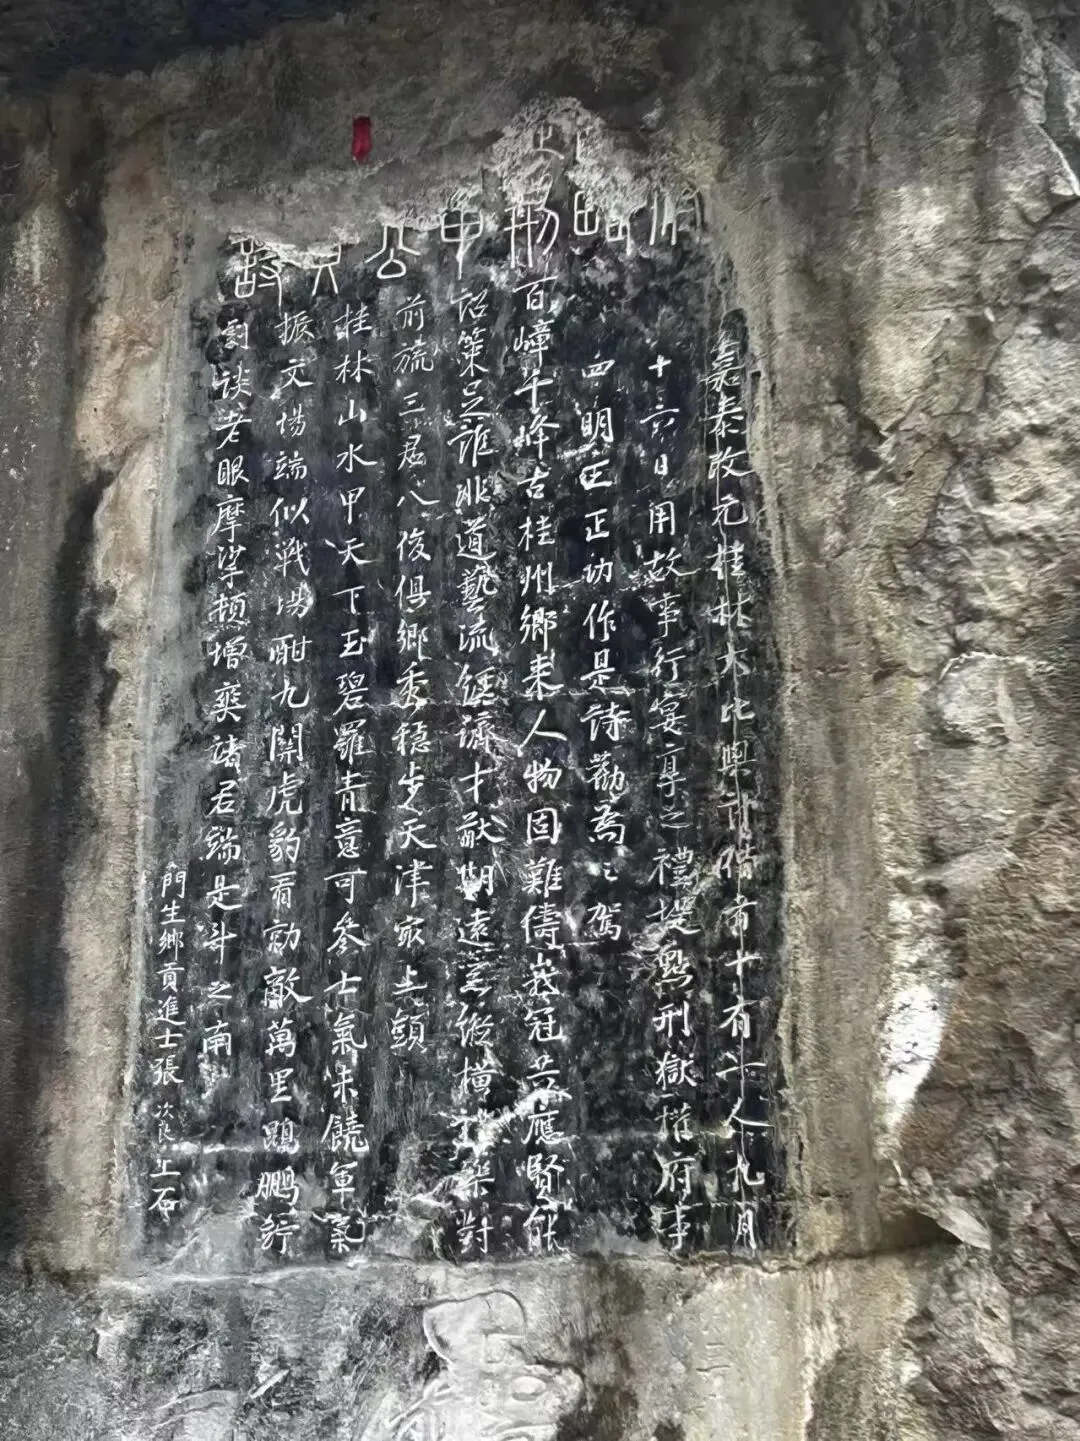 公
嘉泰改元桂林大比與計偕者十有一人九月
十六日用故事行宴享之禮提點刑獄權府事
四明王正功作是詩勸為之駕
百嶂千峰古桂州鄉來人物固難儔峩冠共應賢能
詔策足誰非道藝流經濟才猷期遠業縱橫禮樂對
前旒三君八俊俱鄉秀穩步天津最上頭
桂林山水甲天下玉碧羅青意可參士氣未饒軍氣
振文場端似戰場酣九關虎豹看勍敵萬里鵾鵬佇
劇談老眼摩挲頓增爽諸君端是斗之南
門生鄉貢進士張次良上石